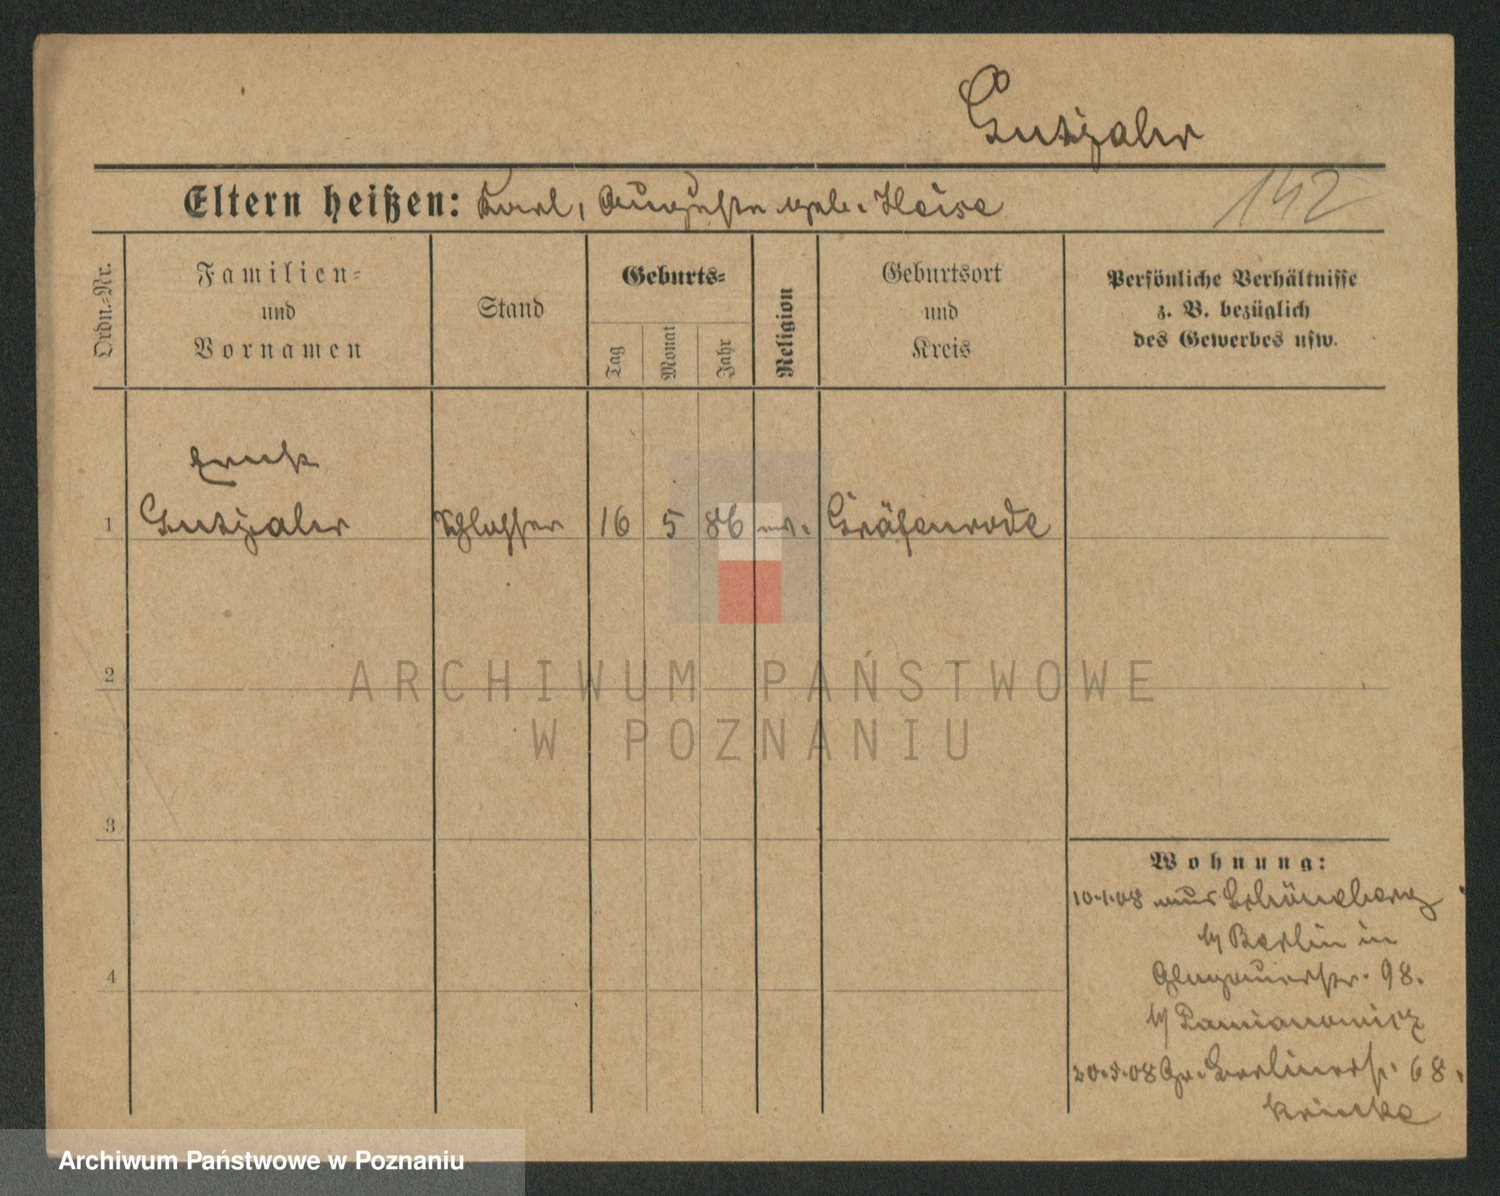 Gutjahr
Eltern heißen: Karl, Auguste geb. Heise
142
Ordn.-Nr.
Familien-
und
Vornamen
Stand
Geburts-
Tag
Monat
Jahr
Religion
Geburtsort
und
Kreis
Persönliche Verhältnisse
z. B. bezüglich
des Gewerbes usw.
Ernst
1 Gutjahr Schlosser 16 5 86 ev. Gräfenrode
2
3
4
Wohnung:
10.1.08 aus Schöneberg
b/ Berlin in
Glogauerstr. 98.
b/
20.5.08 Gr. Berlinerstr. 68.
ARCHIWUM PAŃSTWOWE
W POZNANIU
Archiwum Państwowe w Poznaniu